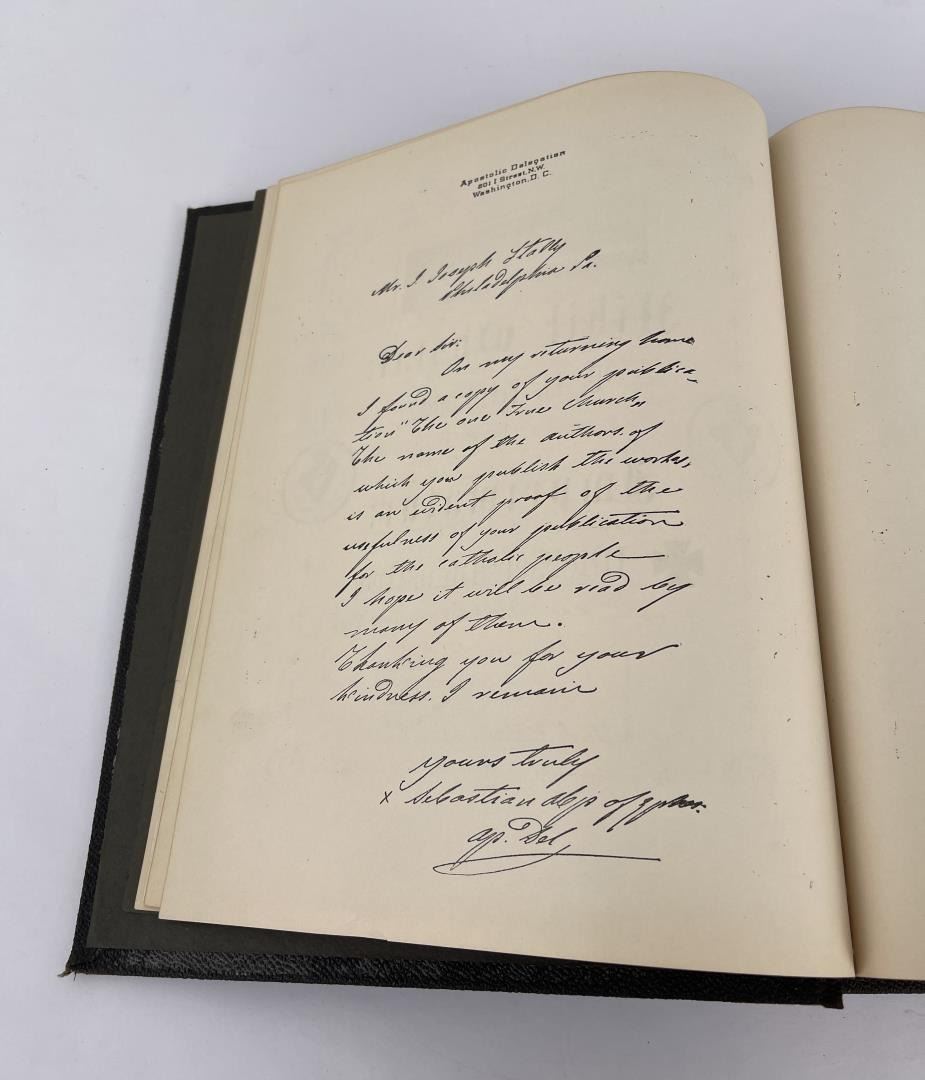 Apostolic Delegation
201 I Street, N.W.
Washington, D. C.
Mr. J. Joseph
Philadelphia Pa.
Dear Sir:
On my returning home
I found a copy of your publica-
tion "The one True Church"
The name of the authors, of
which you publish the works,
is an evident proof of the
usefulness of your publication
for the catholic people
I hope it will be read by
many of them.
Thanking you for your
kindness. I remain
yours truly
x Sebastian Abp of
Ap. Del